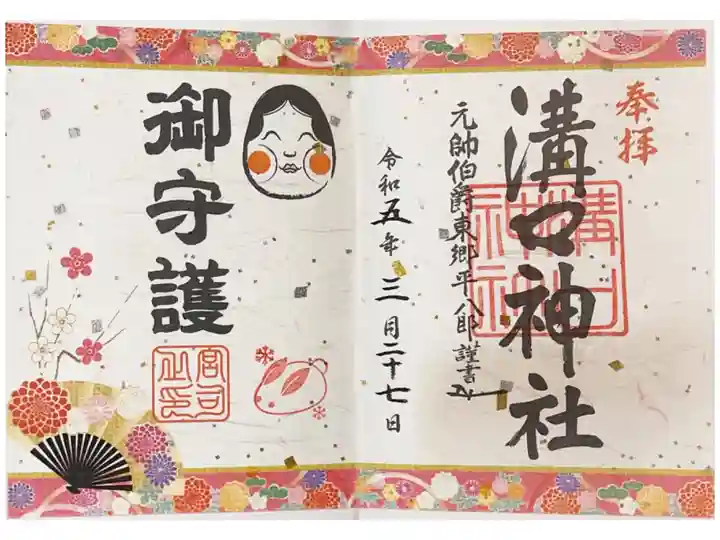 奉拝
溝口神社
元帥伯爵東郷平八郎謹書
令和五年三月二十七日
御守護